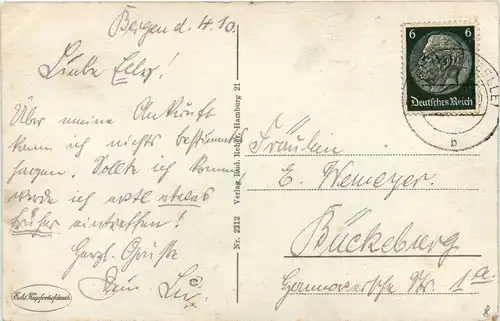 Bergen d. 4.10.
Liebe Elly!
Über meine Ankunft
kann ich nichts bestimmtes
sagen. Sollte ich kommen
werde ich erst etwas
früher eintreffen!
Herzl. Grüße
Dein
Echt Kupfertiefdruck
Nr. 2212 Verlag Rud. Reher-Hamburg 21
6 6
Deutsches Reich
b
Fräulein
E. Wemeyer.
Bückeburg
Hannoversche Str. 1a